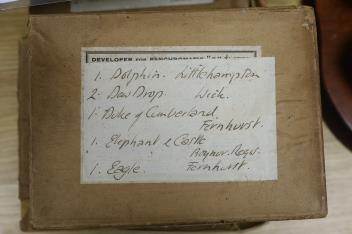 DEVELOPER FOR PANCHROMATIC
1. Dolphin. Littlehampton
2. Dew Drop. Wick.
1. Duke of Cumberland.
Fernhurst.
1. Elephant & Castle
Bognor. Regis.
1. Eagle. Fernhurst.